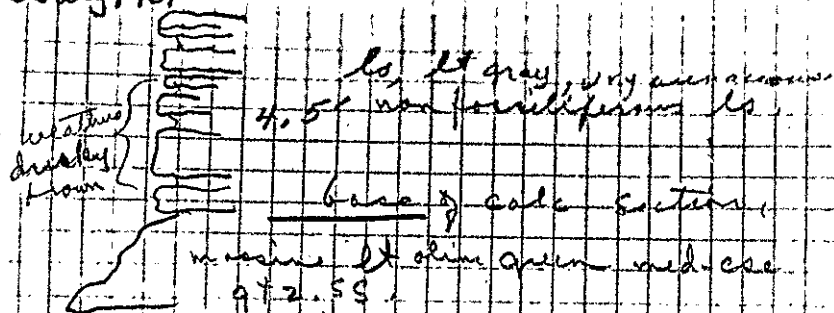 ls, lt gray, very arenaceous
4.5' non fossiliferous ls.
weathers
dusky
brown
base of calc section,
massive lt olive green med-cse
qtz. SS.